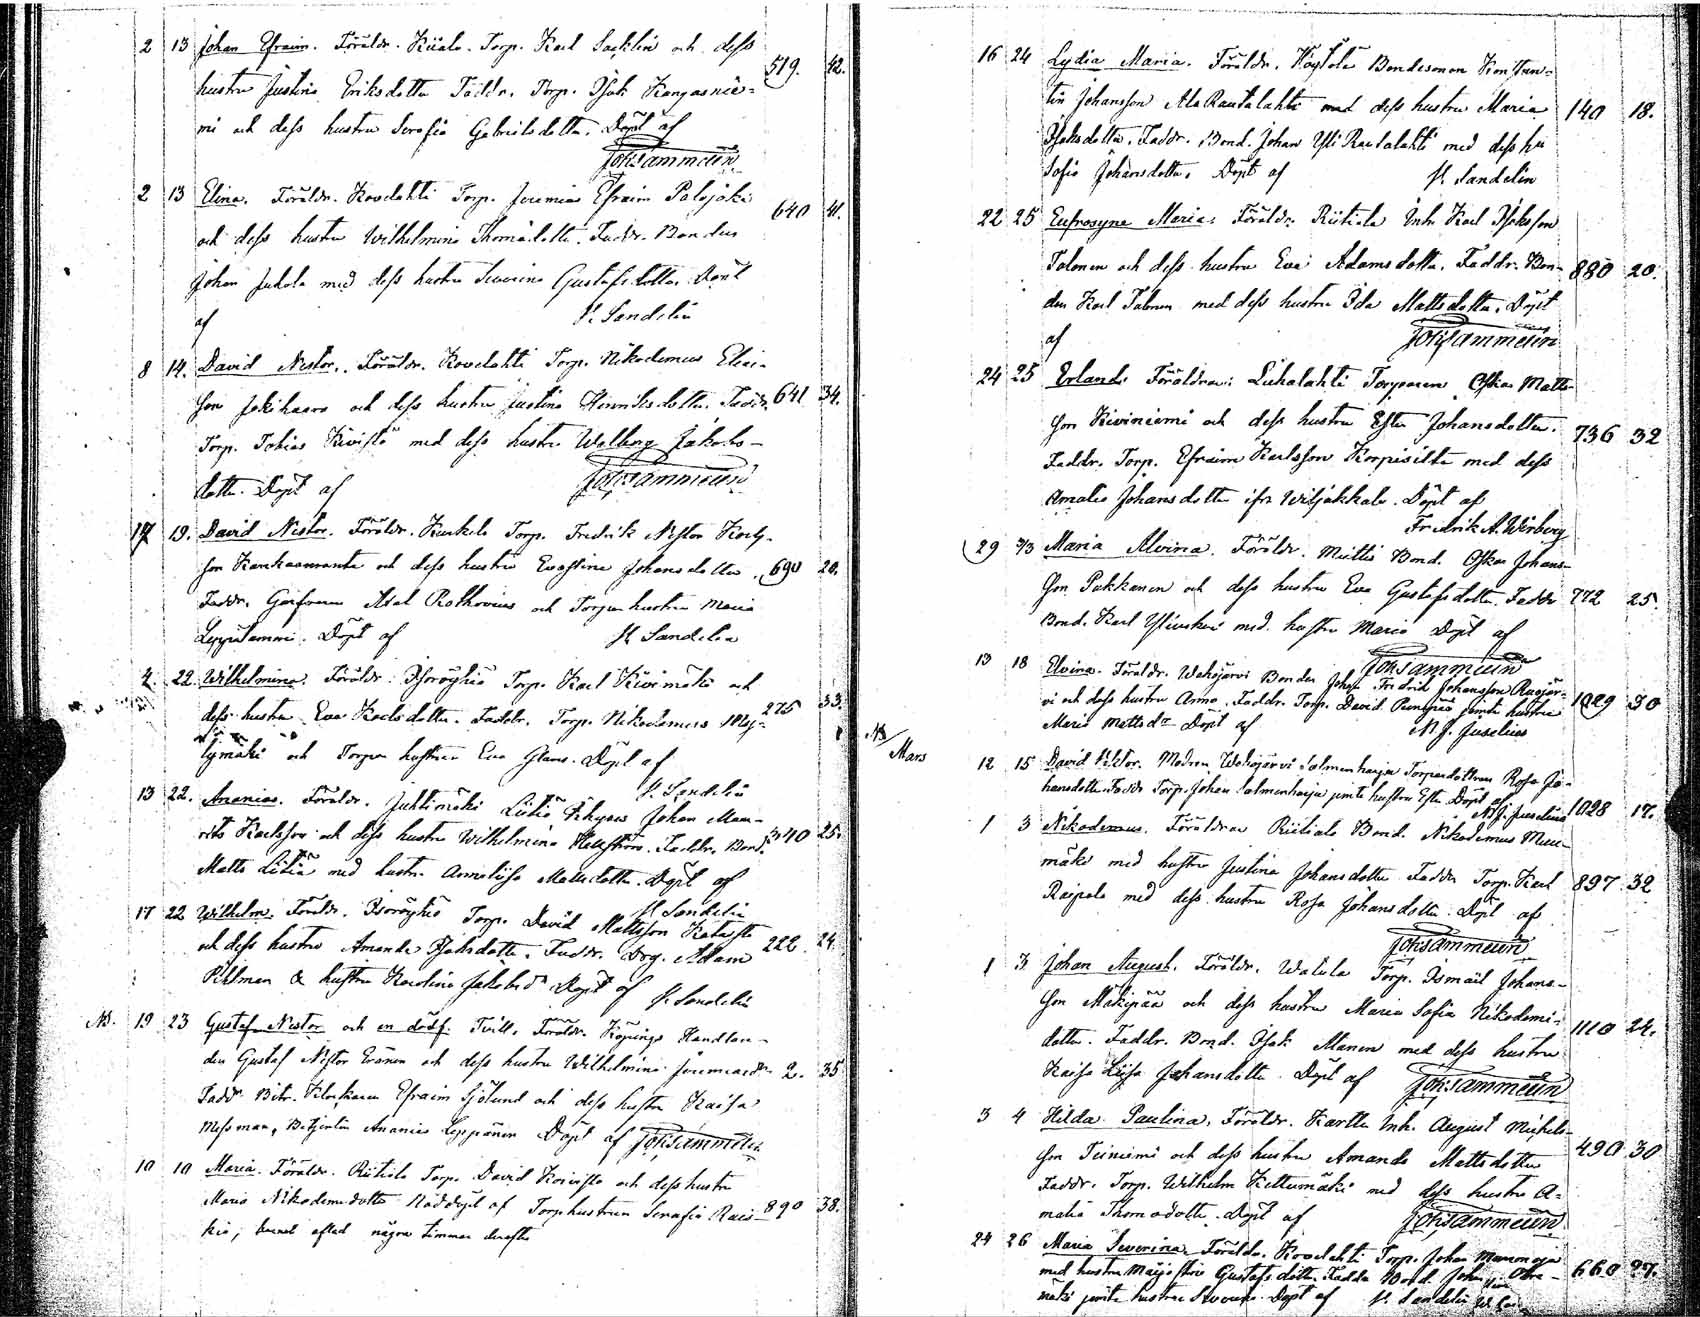 2 13 Johan Efraim. Föräldr. Kiiala. Torp. Karl Sacklin och dess 519. 42.
hustru Justina Eriksdotter Faddr. Torp. Isak Kangasnie=
mi och dess hustru Serafia Gabrielsdotter. Döpt af
Joh. Sammelin
2 13 Elina. Föräldr. Kovelahti Torp. Jeremias Efraim Palojoki 640 41.
och dess hustru Wilhelmina Thomasdotter. Faddr. Bonden
Johan Jukola med dess hustru Severina Gustafsdotter. Döpt
af K. Sandelin
8 14. David Nestor. Föräldr. Kovelahti Torp. Nikodemus Elias-
son Jokihaara och dess hustru Justina Henriksdotter. Faddr. 641 34.
Torp. Tobias Kivistö med dess hustru Walborg Jakobs-
dotter. Döpt af Joh. Sammelin
17 19. David Nestor. Föräldr. Torp. Fredrik Nestor Karls-
son Kankaanranta och dess hustru Evastina Johansdotter. 690 20.
Faddr. Axel Rothovius och Torpar hustrun Maria
Leppilammi. Döpt af K. Sandelin
4 22 Wilhelmina. Föräldr. Isoröyhiö Torp. Karl Kivimäki och
dess hustru Eva Karlsdotter. Faddr. Torp. Nikodemus Myl- 275 33.
lymäki och Torpar hustrun Eva Glans. Döpt af
K. Sandelin
13 22. Ananias. Föräldr. Juhtimäki Liitiä Johan Mau-
rits Karlsson och dess hustru Wilhelmina Hellström. Faddr. Bond. 340 25.
Matts Liitiä med hustru Annaliisa Mattsdotter. Döpt af
K. Sandelin
17 22 Wilhelm. Föräldr. Isoröyhiö Torp. David Mattsson Katajisto
och dess hustru Amanda Isaksdotter. Faddr. Drg. Adam 222 24
Pihlman & hustru Karolina Jakobsdr Döpt af K. Sandelin
NB. 19 23 Gustaf Nestor och en dödf. Tvill. Föräldr. Köpings Handlan-
den Gustaf Nestor Eränen och dess hustru Wilhelmina Jeremiasdr 2. 35
Faddr Bitr. Klockaren Efraim Sjölund och dess hustru Kaisa
Messman, Betjenten Ananias Leppänen Döpt af Joh. Sammelin
10 10 Maria. Föräldr. Riitiala Torp. David Koivisto och dess hustru
Maria Nikodemusdotter Nöddöpt af Torphustrun Serafia Rais- 890 38.
kio, barnet afled några timmar derefter
16 24 Lydia Maria. Föräldr. Röyhiö Bondesonen Konstan=
tin Johansson Ala Rautalahti med dess hustru Maria 140 18.
Isaksdotter. Faddr. Bond. Johan Yli Rautalahti med dess hu
Sofia Johansdotter. Döpt af K. Sandelin
22 25 Eufrosyne Maria. Föräldr. Riitiala Inh. Karl Isaksson
Talonen och dess hustru Eva Adamsdotter. Faddr. Bon- 880 20.
den Karl Talonen med dess hustru Ida Mattsdotter. Döpt
af Joh. Sammelin
24 25 Erland. Föräldrar: Luhalahti Torparen Oskar Matts-
son Kiviniemi och dess hustru Ester Johansdotter. 736 32
Faddr. Torp. Efraim Karlsson Korpisilta med dess
Amalia Johansdotter ifr. Wiljakkala. Döpt af
Fredrik A. Wirberg
29 2/3 Maria Alvina. Föräldr. Miettis Bond. Oskar Johans-
son Pukkanen och dess hustru Eva Gustafsdotter. Faddr 772 25.
Bond. Karl Yliuski med hustru Maria Döpt af
Joh. Sammelin
13 18 Elvina. Föräldr. Wehojärvi Bonden Johan Fredrik Johansson Ruojär-
vi och dess hustru Anna. Faddr. Torp. David jemte hustru 1029 30
Maria Mattsdr Döpt af M. J. Juselius
NB/ Mars
12 15 David Viktor. Modren Wehojärvi Salmenharja Torparedottren Rosa Jo-
hansdotter. Faddr Torp. Johan Salmenharja jemte hustru Ester Döpt af 1028 17.
M. J. Juselius
1 3 Nikodemus. Föräldrar Riitiala Bond. Nikodemus
mäki med hustru Justina Johansdotter Faddr Torp. Karl 897 32
Raipala med dess hustru Rosa Johansdotter. Döpt af
Joh. Sammelin
1 3 Johan August. Föräldr. Watula Torp. Ismael Johans-
son Mäkipää och dess hustru Maria Sofia Nikodemi- 1110 24.
dotter. Faddr. Bond. Isak Manen med dess hustru
Kaisa Liisa Johansdotter. Döpt af Joh. Sammelin
3 4 Hilda Paulina. Föräldr. Kartti Inh. August Mikels-
son Teiniemi och dess hustru Amanda Mattsdotter 490 30
Faddr. Torp. Wilhelm Kettumäki med dess hustru A=
malia Thomasdotter. Döpt af Joh. Sammelin
24 26 Maria Severina. Föräldr. Kovelahti Torp. Johan
med hustru Maijastina Gustafsdotter. Faddr Bond. Johan 660 27.
mäki jemte hustru Döpt af K. Sandelin